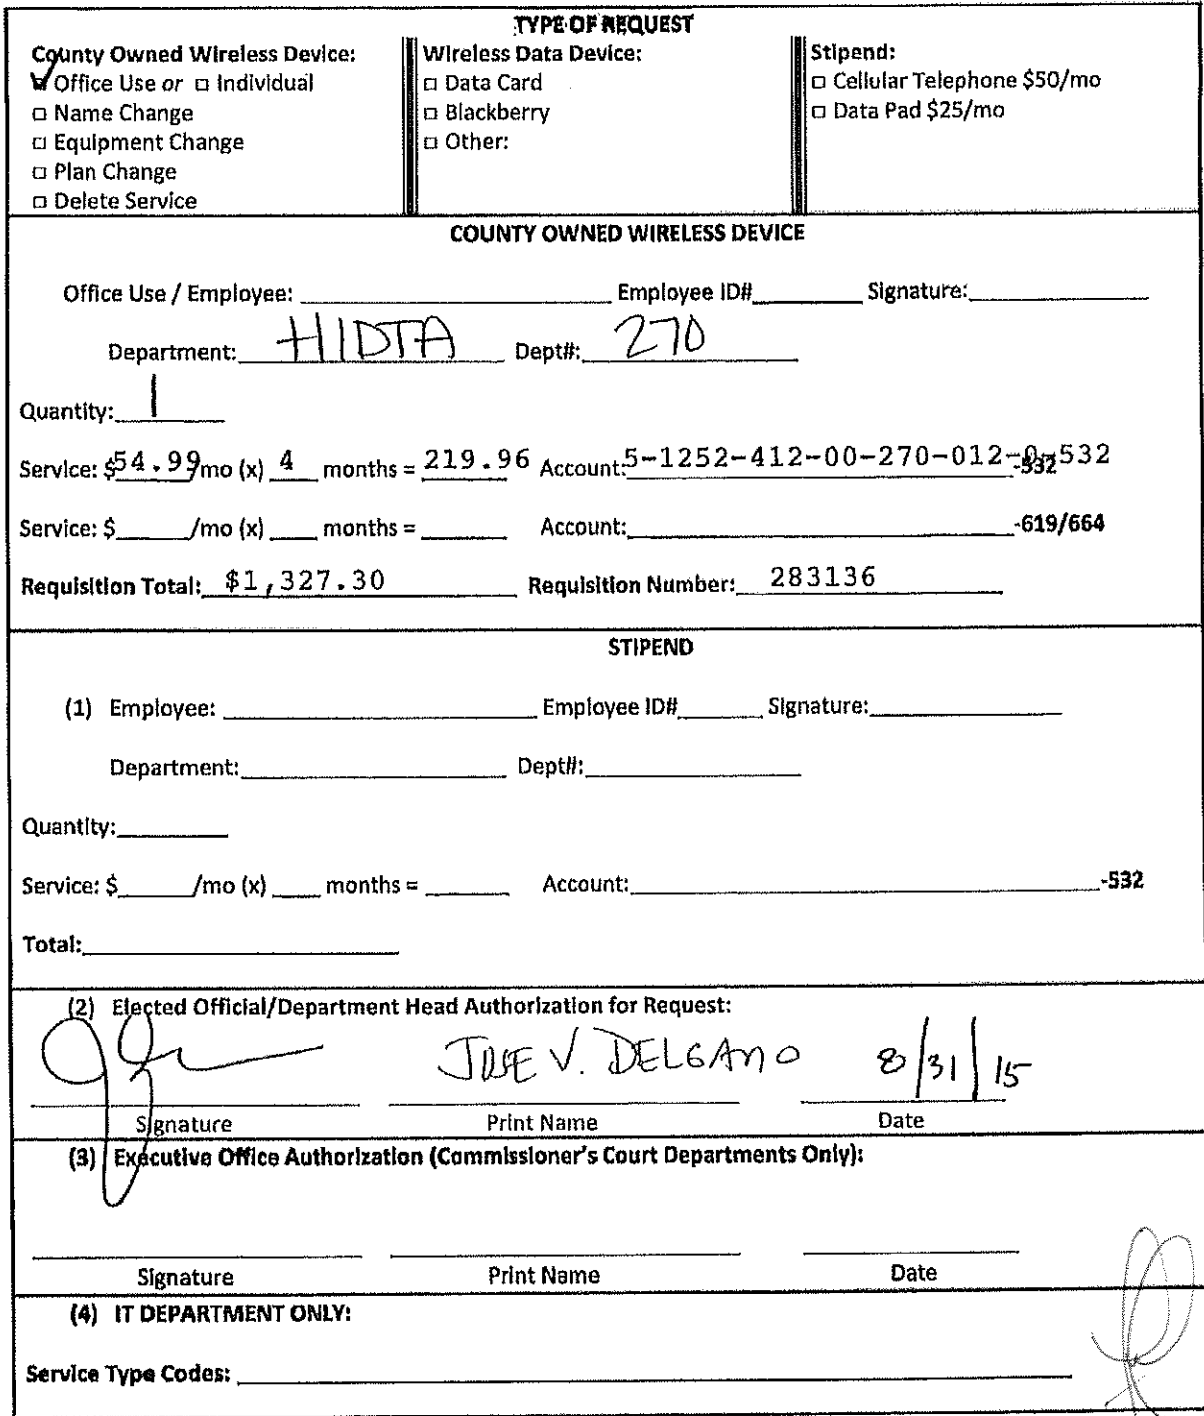 TYPE OF REQUEST
County Owned Wireless Device:
Office Use or □ Individual
□ Name Change
□ Equipment Change
□ Plan Change
□ Delete Service
Wireless Data Device:
□ Data Card
□ Blackberry
□ Other:
Stipend:
□ Cellular Telephone $50/mo
□ Data Pad $25/mo
COUNTY OWNED WIRELESS DEVICE
Office Use / Employee: Employee ID# Signature:
Department: HIDTA Dept#: 270
Quantity: 1
Service: $54.99/mo (x) 4 months = 219.96 Account: 5-1252-412-00-270-012-0-532 -532
Service: $ /mo (x) months = Account: -619/664
Requisition Total: $1,327.30 Requisition Number: 283136
STIPEND
(1) Employee: Employee ID# Signature:
Department: Dept#:
Quantity:
Service: $ /mo (x) months = Account: -532
Total:
(2) Elected Official/Department Head Authorization for Request:
JOSE V. DELGADO 8/31/15
Signature Print Name Date
(3) Executive Office Authorization (Commissioner's Court Departments Only):
Signature Print Name Date
(4) IT DEPARTMENT ONLY:
Service Type Codes: